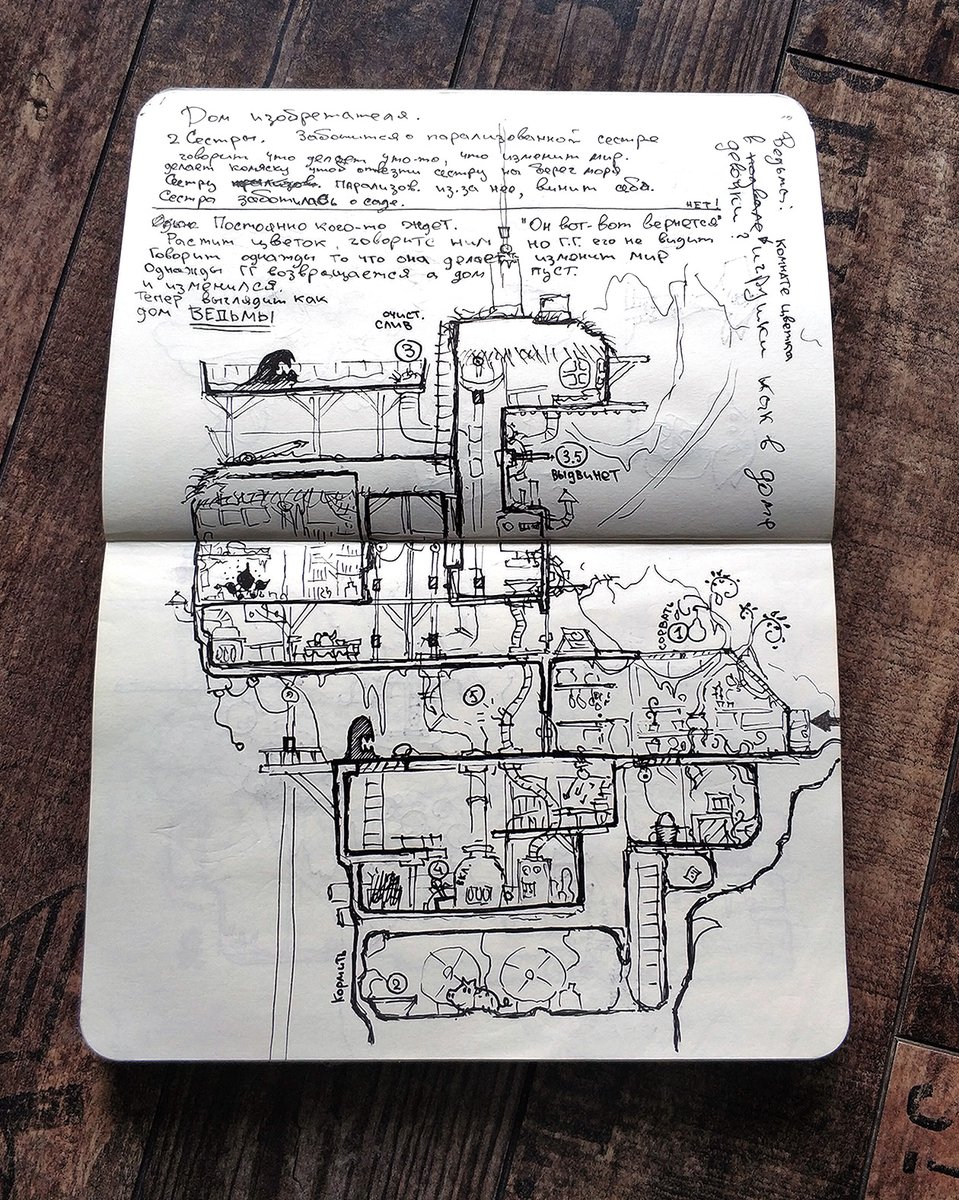 Дом изобретателя.
2 Сестры. Заботится о парализованной сестре
говорит что делает что-то, что изменит мир.
делает коляску чтоб отвезти сестру на берег моря
Сестру парализов. из-за нео, винит себя.
Сестра заботилась о саде.
НЕТ!
Постоянно кого-то ждет. "Он вот-вот вернется"
Растит цветок, говорит с ним но Г.Г. его не видит
Говорит однажды то что она делает изменит мир
Однажды ГГ возвращается а дом пуст.
и изменился.
Тепер выглядит как
дом ВЕДЬМЫ
Ведьмы:
в комнате цветка
девочки игрушки как в доме
очист.
слив
3
3.5
выдвинет
сорвать
1
5
4
вкл.
кормить
2